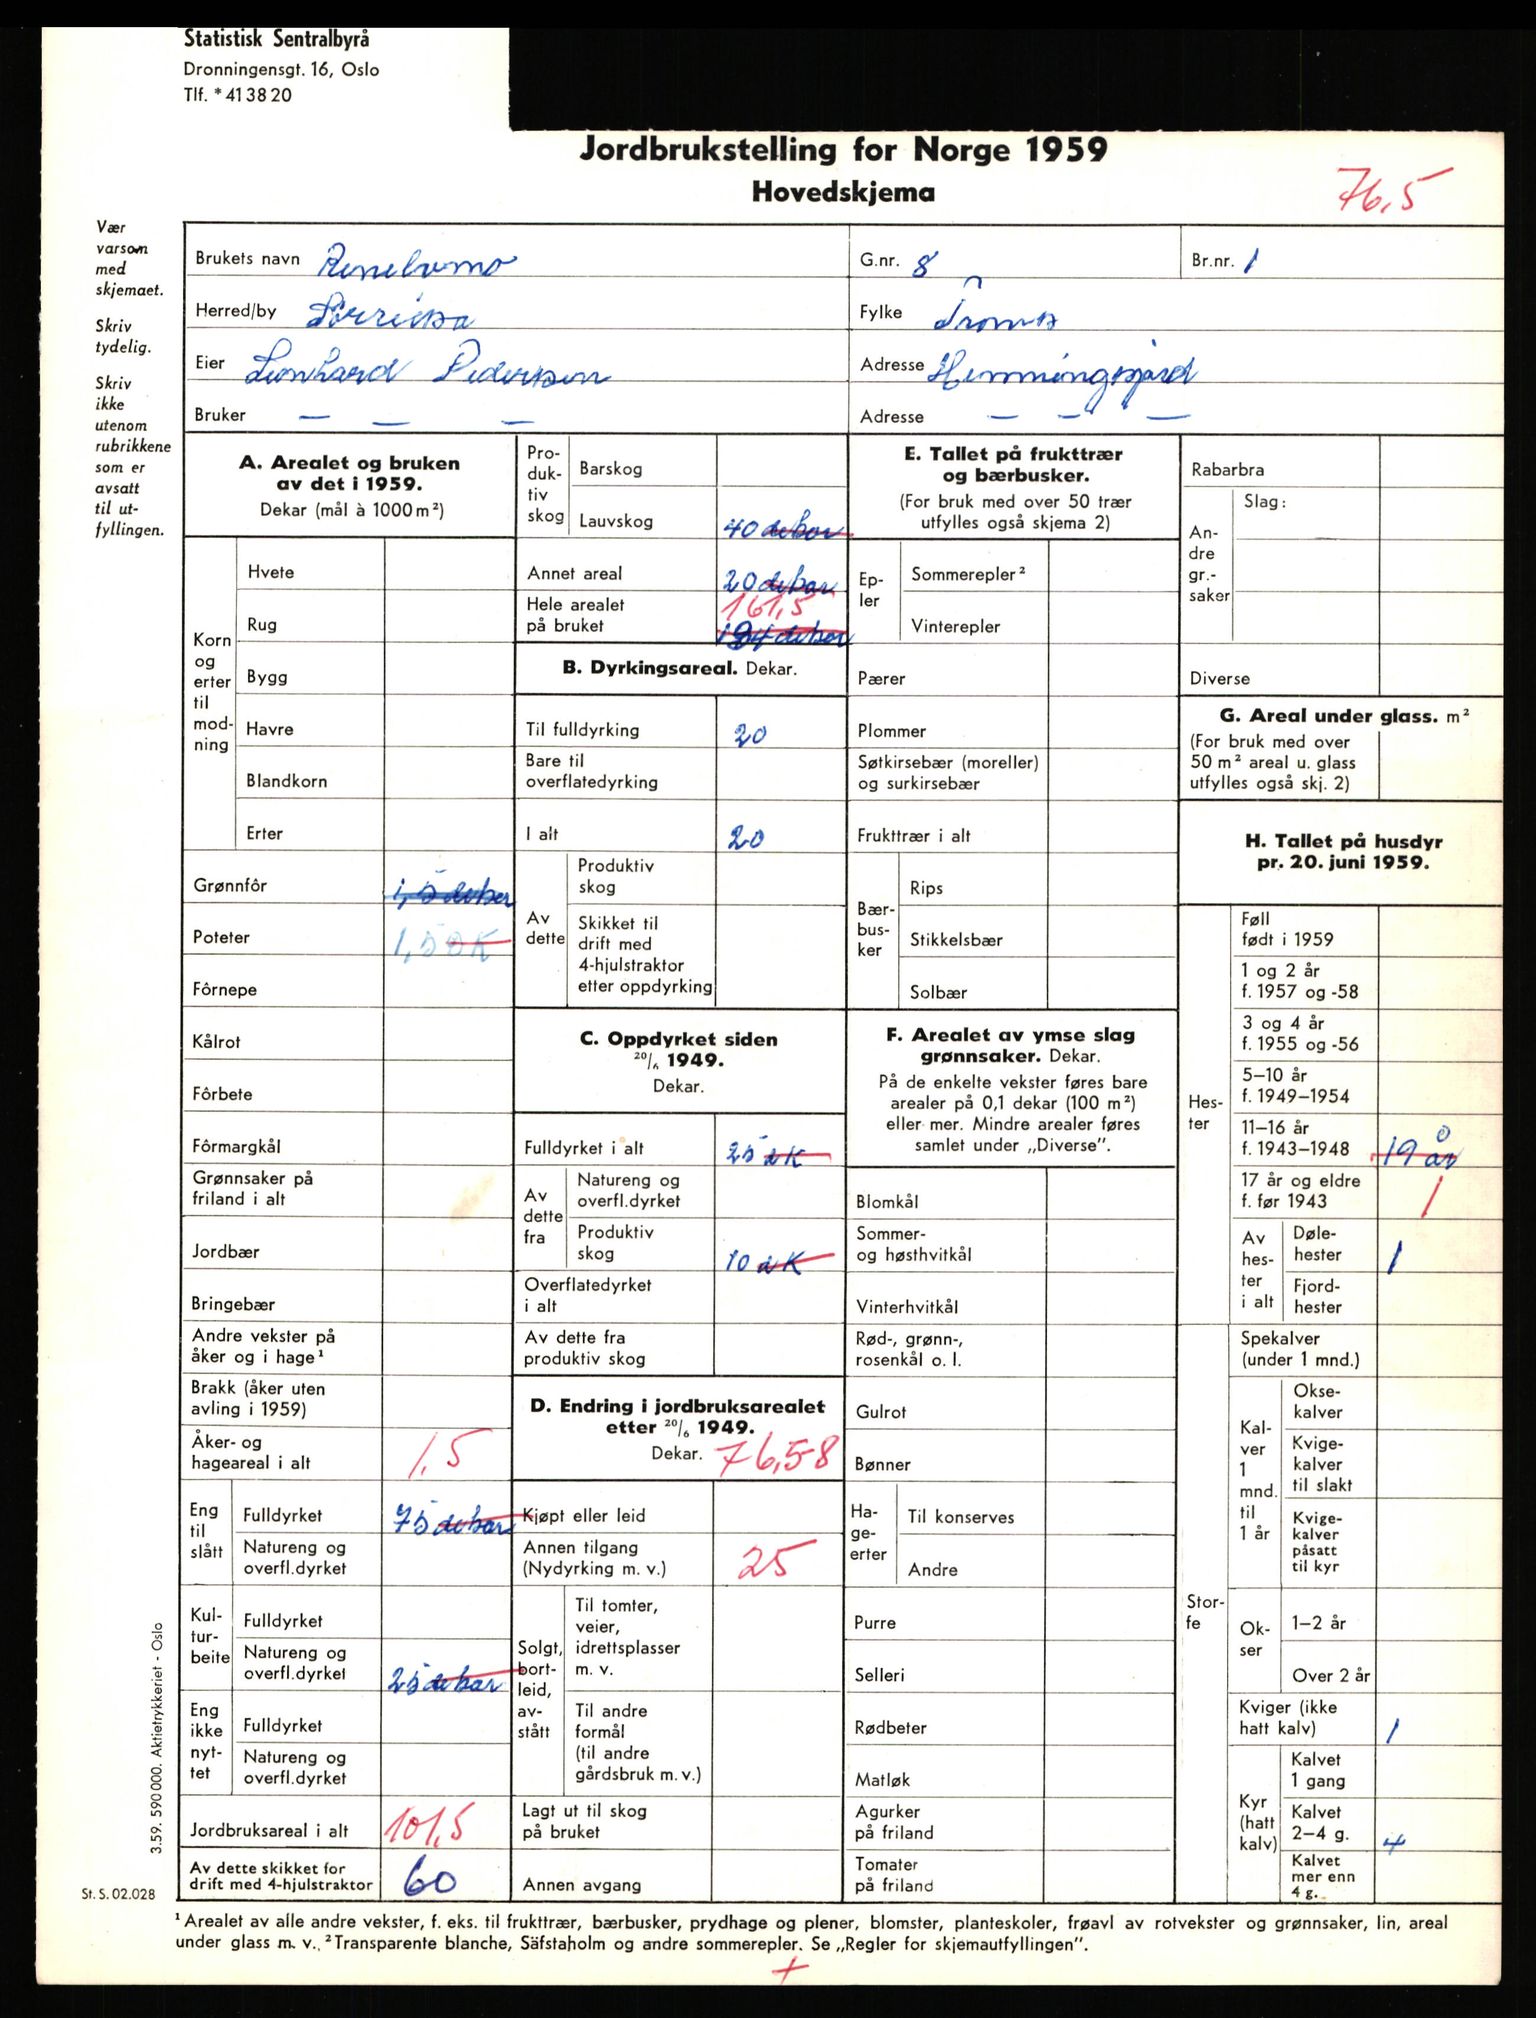 Statistisk Sentralbyrå
Dronningensgt. 16, Oslo
Tlf. * 41 38 20
Jordbrukstelling for Norge 1959
Hovedskjema
76,5
Vær
varsom
med
skjemaet.
Skriv
tydelig.
Skriv
ikke
utenom
rubrikkene
som er
avsatt
til ut-
fyllingen.
Brukets navn
G.nr. 8
Br.nr. 1
Herred/by Sørreisa
Fylke Troms
Eier Leonhard Pedersen
Adresse Hemmingsjord
Bruker — — —
Adresse — — —
A. Arealet og bruken
av det i 1959.
Dekar (mål à 1000 m²)
Korn
og
erter
til
mod-
ning
Hvete
Rug
Bygg
Havre
Blandkorn
Erter
Grønnfôr 1,5 dekar
Poteter 1,5 dK
Fôrnepe
Kålrot
Fôrbete
Fôrmargkål
Grønnsaker på
friland i alt
Jordbær
Bringebær
Andre vekster på
åker og i hage¹
Brakk (åker uten
avling i 1959)
Åker- og
hageareal i alt 1,5
Eng
til
slått
Fulldyrket 75 dekar
Natureng og
overfl.dyrket
Kul-
tur-
beite
Fulldyrket
Natureng og
overfl.dyrket 25 dekar
Eng
ikke
nyt-
tet
Fulldyrket
Natureng og
overfl.dyrket
Jordbruksareal i alt 101,5
Av dette skikket for
drift med 4-hjulstraktor 60
Pro-
duk-
tiv
skog
Barskog
Lauvskog 40 dekar
Annet areal 20 dekar
Hele arealet
på bruket 161,5
B. Dyrkingsareal. Dekar.
Til fulldyrking 20
Bare til
overflatedyrking
I alt 20
Av
dette
Produktiv
skog
Skikket til
drift med
4-hjulstraktor
etter oppdyrking
C. Oppdyrket siden
20/6 1949.
Dekar.
Fulldyrket i alt 25 dK
Av
dette
fra
Natureng og
overfl.dyrket
Produktiv
skog 10 dK
Overflatedyrket
i alt
Av dette fra
produktiv skog
D. Endring i jordbruksarealet
etter 20/6 1949.
Dekar. 76,5-8
Kjøpt eller leid
Annen tilgang
(Nydyrking m. v.) 25
Solgt,
bort-
leid,
av-
stått
Til tomter,
veier,
idrettsplasser
m. v.
Til andre
formål
(til andre
gårdsbruk m. v.)
Lagt ut til skog
på bruket
Annen avgang
E. Tallet på frukttrær
og bærbusker.
(For bruk med over 50 trær
utfylles også skjema 2)
Ep-
ler
Sommerepler²
Vinterepler
Pærer
Plommer
Søtkirsebær (moreller)
og surkirsebær
Frukttrær i alt
Bær-
bus-
ker
Rips
Stikkelsbær
Solbær
F. Arealet av ymse slag
grønnsaker. Dekar.
På de enkelte vekster føres bare
arealer på 0,1 dekar (100 m²)
eller mer. Mindre arealer føres
samlet under „Diverse".
Blomkål
Sommer-
og høsthvitkål
Vinterhvitkål
Rød-, grønn-,
rosenkål o. l.
Gulrot
Bønner
Ha-
ge-
erter
Til konserves
Andre
Purre
Selleri
Rødbeter
Matløk
Agurker
på friland
Tomater
på friland
Rabarbra
An-
dre
gr.-
saker
Slag:
Diverse
G. Areal under glass. m²
(For bruk med over
50 m² areal u. glass
utfylles også skj. 2)
H. Tallet på husdyr
pr. 20. juni 1959.
Hes-
ter
Føll
født i 1959
1 og 2 år
f. 1957 og -58
3 og 4 år
f. 1955 og -56
5–10 år
f. 1949–1954
11–16 år
f. 1943–1948 0 19 år
17 år og eldre
f. før 1943 1
Av
hes-
ter
i alt
Døle-
hester 1
Fjord-
hester
Stor-
fe
Spekalver
(under 1 mnd.)
Kal-
ver
1
mnd.
til
1 år
Okse-
kalver
Kvige-
kalver
til slakt
Kvige-
kalver
påsatt
til kyr
Ok-
ser
1–2 år
Over 2 år
Kviger (ikke
hatt kalv) 1
Kyr
(hatt
kalv)
Kalvet
1 gang
Kalvet
2–4 g. 4
Kalvet
mer enn
4 g.
3.59. 590 000. Aktietrykkeriet - Oslo
St. S. 02.028
¹ Arealet av alle andre vekster, f. eks. til frukttrær, bærbusker, prydhage og plener, blomster, planteskoler, frøavl av rotvekster og grønnsaker, lin, areal
under glass m. v., ² Transparente blanche, Säfstaholm og andre sommerepler. Se „Regler for skjemautfyllingen".
+